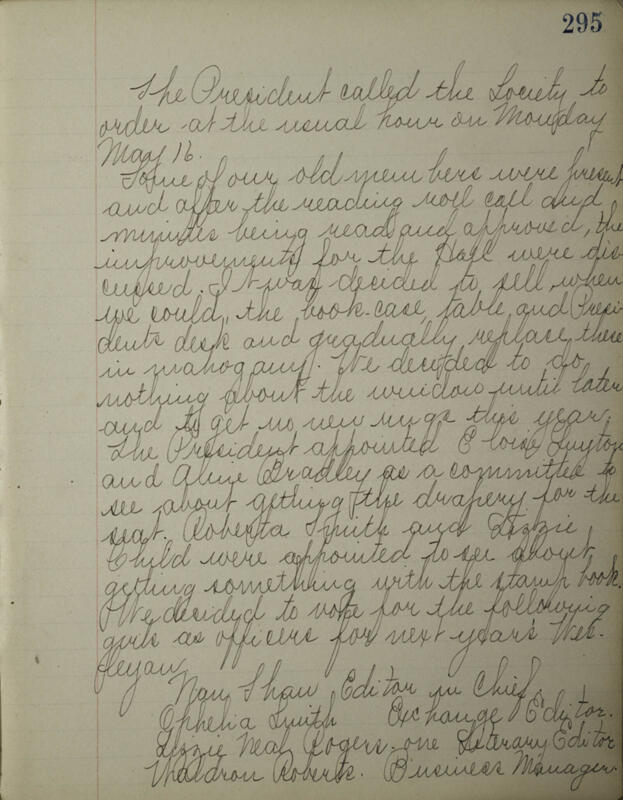 295
The President called the Society to
order at the usual hour on Monday
May 16.
Some of our old members were present
and after the reading roll call and
minutes being read and approved, the
improvements for the Hall were dis
cussed. It was decided to sell, when
we could, the book-case, table and Presi
dents desk and gradually replace these
in mahogany. We decided to do
nothing about the window until later
and to get no new rugs this year.
The President appointed Eloise Guyton
and Aline Bradley as a committee to
see about getting the drapery for the
seat. Roberta Smith and Lizzie
Child were appointed to see about
getting something with the stamp book.
We decided to vote for the following
girls as officers for next year's Wes-
leyan
Nan Shaw Editor in Chief.
Ophelia Smith Exchange Editor.
Lizzie Neal Rogers - one Literary Editor
Waldron Roberts. Business Manager.